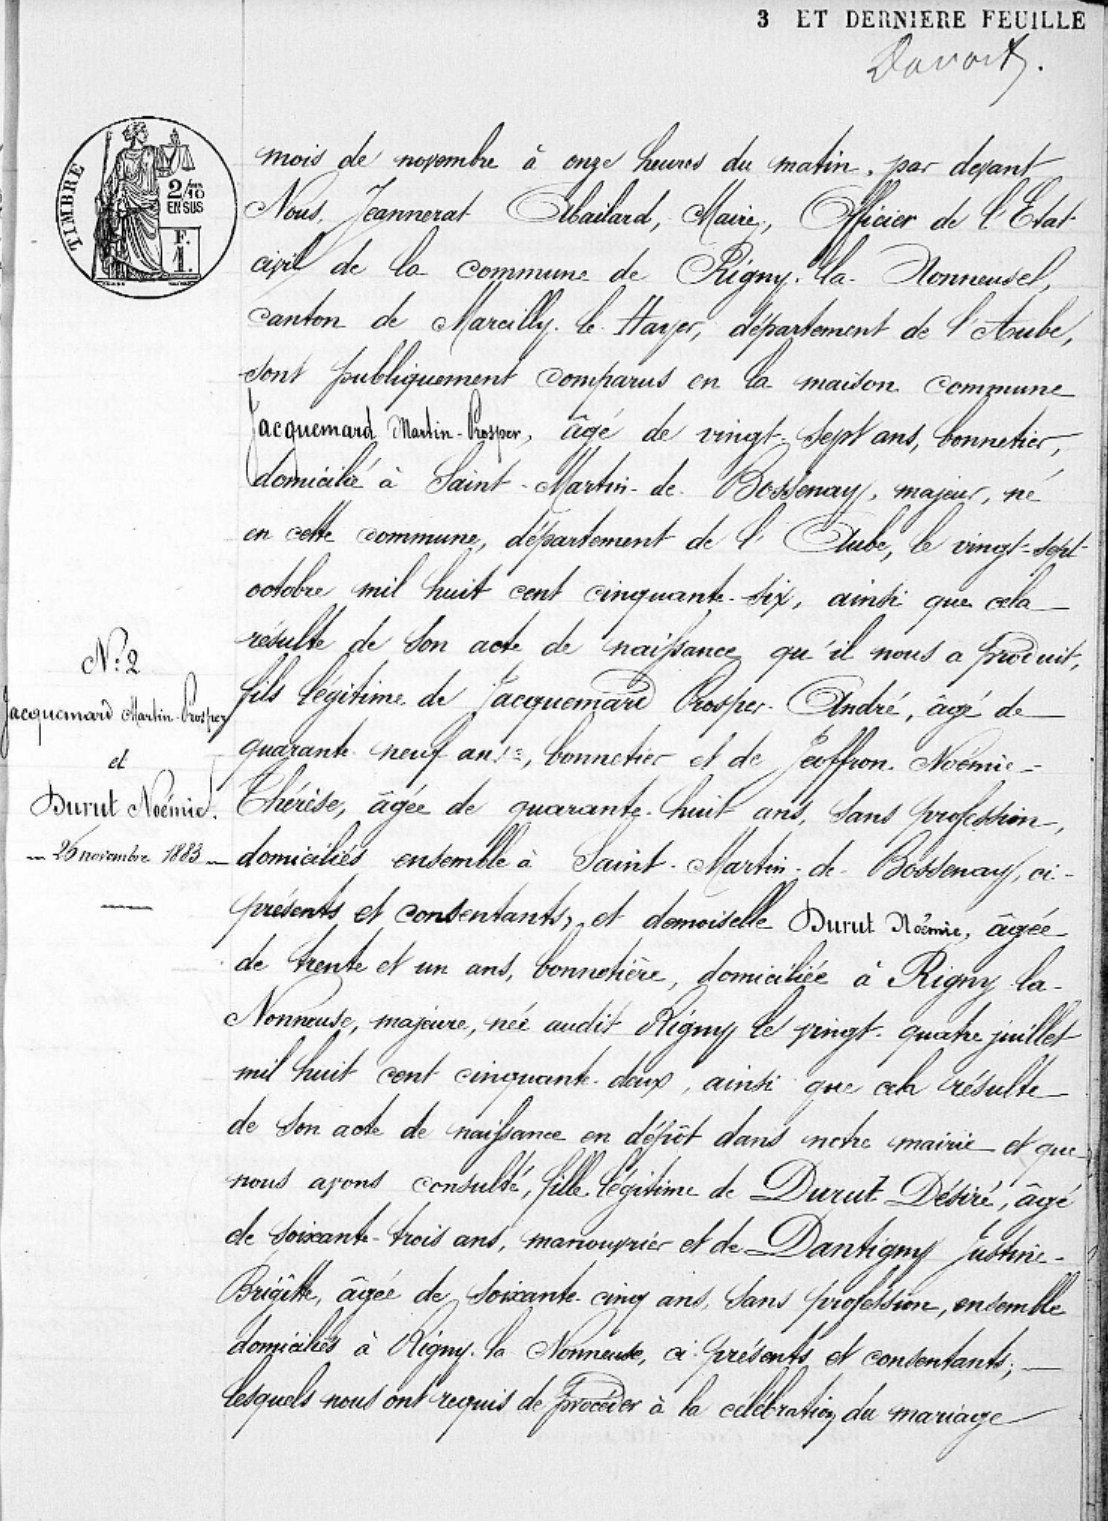 3 ET DERNIERE FEUILLE
TIMBRE
2/10
EN SUS
F.
1.
mois de novembre à onze heures du matin, par devant
Nous, Jeannerat Abailard, Maire, Officier de l'Etat
civil de la commune de Rigny-la-Nonneuse,
canton de Marcilly-le-Hayer, département de l'Aube,
sont publiquement comparus en la maison commune
Jacquemard Martin-Prosper, âgé de vingt-sept ans, bonnetier,
domicilié à Saint-Martin-de-Bossenay, majeur, né
en cette commune, département de l'Aube, le vingt-sept
octobre mil huit cent cinquante-six, ainsi que cela
résulte de son acte de naissance qu'il nous a produit,
fils légitime de Jacquemard Prosper-André, âgé de
quarante-neuf ans, bonnetier et de Jeoffron Noémie-
Thérèse, âgée de quarante-huit ans, sans profession,
domiciliés ensemble à Saint-Martin-de-Bossenay, ci-
présents et consentants, et demoiselle Durut Noémie, âgée
de trente et un ans, bonnetière, domiciliée à Rigny-la-
Nonneuse, majeure, née audit Rigny le vingt-quatre juillet
mil huit cent cinquante-deux, ainsi que cela résulte
de son acte de naissance en dépôt dans notre mairie et que
nous avons consulté, fille légitime de Durut Désiré, âgé
de soixante-trois ans, manouvrier et de Dantigny Justine-
Brigitte, âgée de soixante-cinq ans, sans profession, ensemble
domiciliés à Rigny-la-Nonneuse, ci-présents et consentants;
lesquels nous ont requis de procéder à la célébration du mariage
N.º 2
Jacquemard Martin-Prosper
et
Durut Noémie.
26 novembre 1883